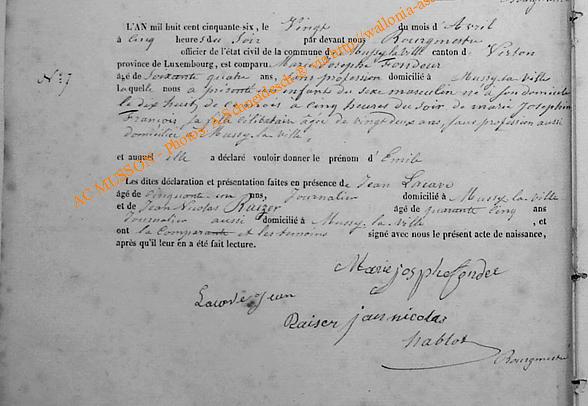 L'AN mil huit cent cinquante-six, le Vingt du mois d'Avril
à Cinq heures du Soir par devant nous Bourgmestre
officier de l'état civil de la commune de Mussy la Ville canton de Virton
N° 7
province de Luxembourg, est comparu Marie Josephe Fondeur
âgé de Soixante quatre ans, sans profession domicilié à Mussy la Ville
Laquelle nous a présenté un enfant du sexe masculin né à son domicile
le dix huit de ce mois à Cinq heures du Soir de marie Josephine
François sa fille célibataire âgée de vingt deux ans, sans profession aussi
domiciliée à Mussy la Ville,
et auquel elle a déclaré vouloir donner le prénom d'Emile
Les dites déclaration et présentation faites en présence de Jean Lacave
âgé de Cinquante un ans, Journalier domicilié à Mussy la Ville
et de Jean Nicolas Raizer âgé de quarante Cinq ans
Journalier aussi domicilié à Mussy la Ville, et
ont la Comparante et les temoins signé avec nous le présent acte de naissance,
après qu'il leur en a été fait lecture.
Marie josphe fonder
Lacove Jean
Raiser jean nicolas
hablot
Bourgmestre
AC MUSSON - Photos A. Scheidesch © via http://wallonia-asbl